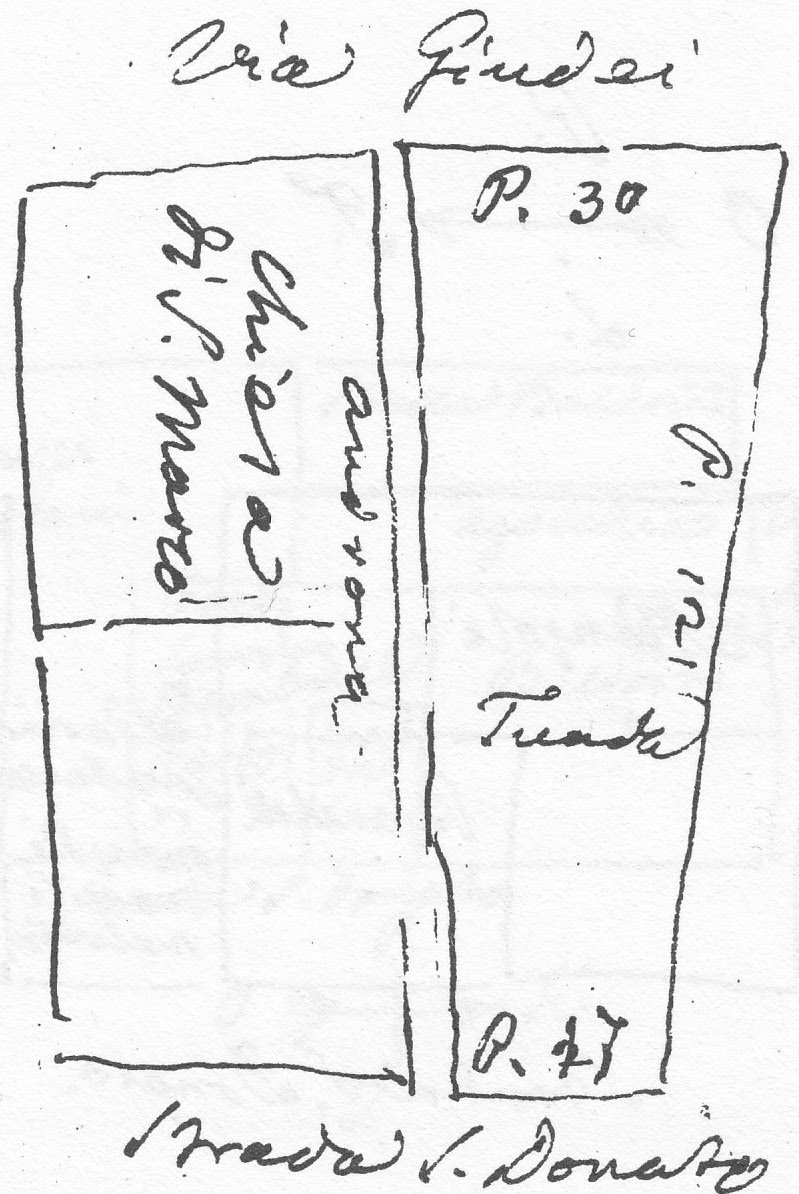 Via Giudei
P. 30
Chiesa
di S. Marco
androna
P. 121
Tuada
Strada S. Donato